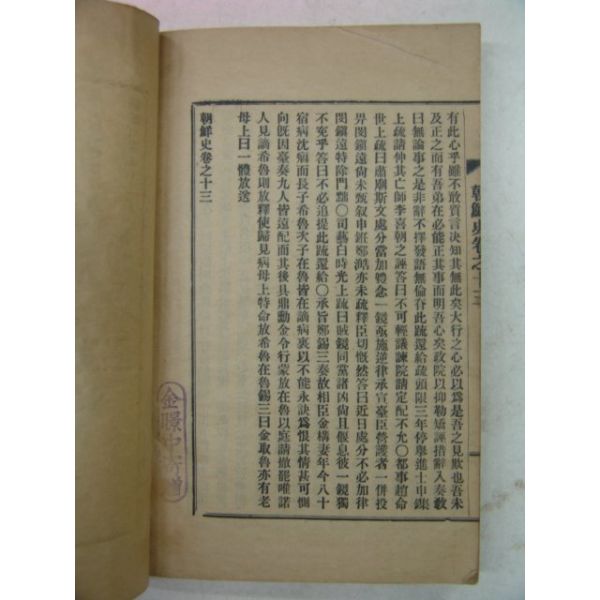 有此心乎雖不敢質言決知其無此矣大行之心必以爲是吾之見欺也吾未
及正之而有吾弟在必能正其事而明吾心矣政院以抑勒矯誣措辭入奏敎
曰無論事之是非辭不擇發語無倫右此疏還給疏頭限三年停擧進士申鏶
上疏請伸其亡師李喜朝之誣答曰不可輕議諫院請定配不允〇都事趙命
世上疏曰肅廟斯文處分當加軆念一鏡亟施逆律承宣臺臣營護者一併投
畀閔鎭遠尙未甄敍申鉦鄭澔亦未疏釋臣切慨然答曰近日處分不必加律
閔鎭遠特除門黜〇司藝白時光上疏曰賊鏡同黨諸凶尙且偃息彼一鏡獨
不寃乎答曰不必追提此疏還給〇承旨鄭錫三奏故相臣金構妻年今八十
宿病沈痼而長子希魯次子在魯皆在謫病裏以不能永訣爲恨其情甚可惻
向旣因臺奏九人皆遠配而其後具鼎勳金令行蒙放在魯以庭請撤罷唯諾
人見謫希魯則放釋使歸見病母上特命放希魯在魯錫三曰金取魯亦有老
母上曰一體放送
朝鮮史卷之十三
朝鮮史卷之十三